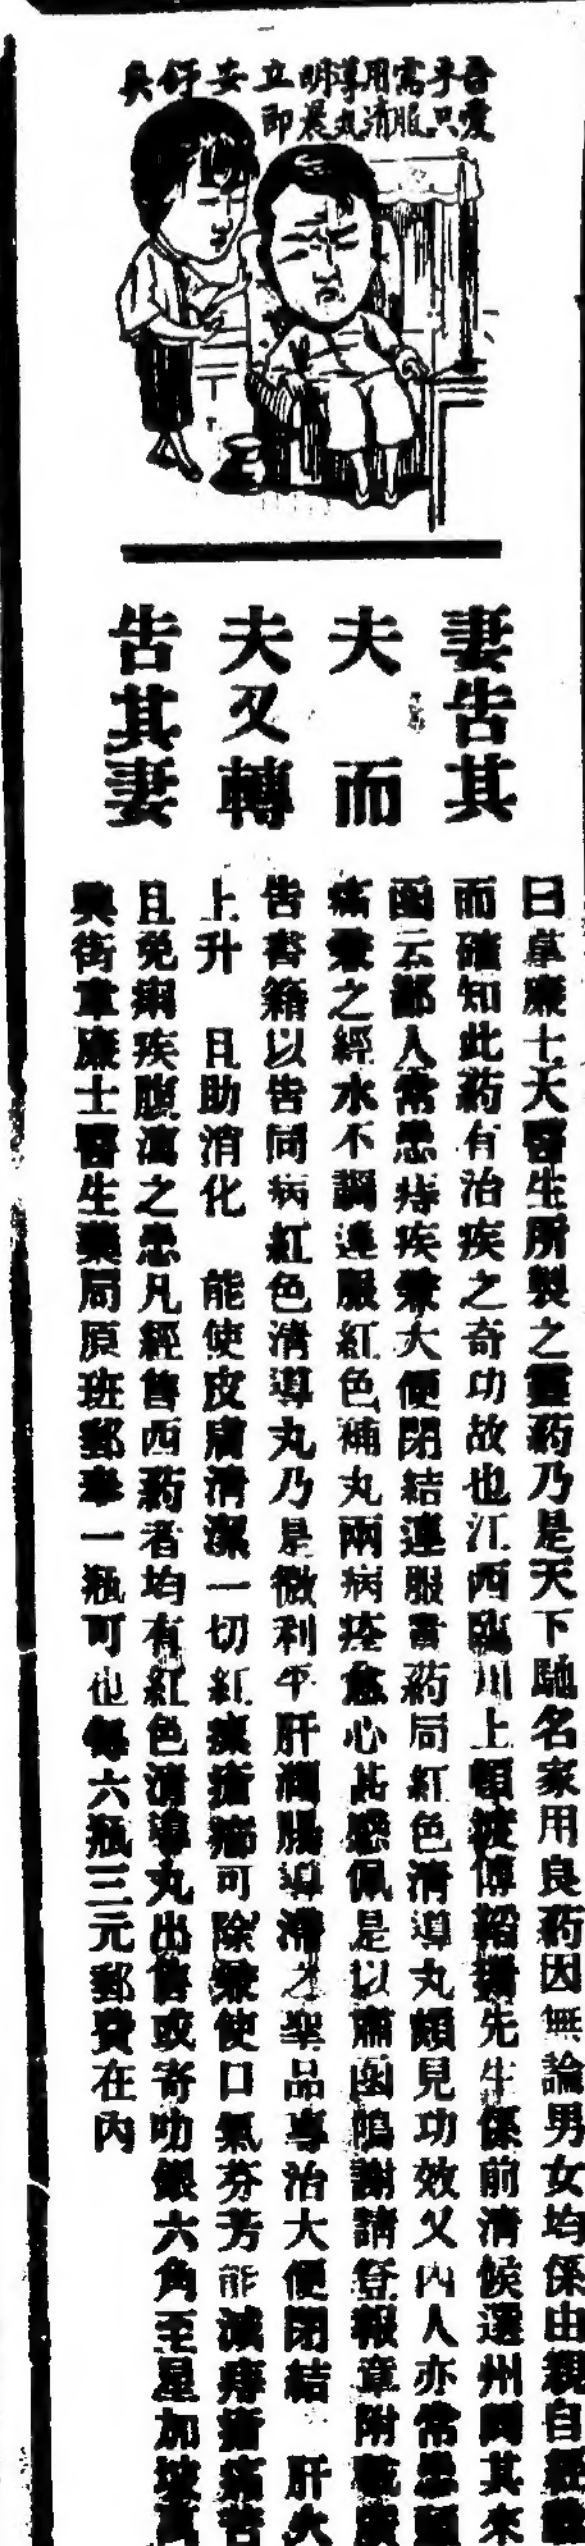 吾愛
乎只
需服
用清
導丸
明晨
立即
安
舒
矣
妻告其
夫 而
夫又轉
告其妻
曰韋廉士大醫生所製之靈药乃是天下馳名家用良药因無論男女均係由親自經
而確知此药有治疾之奇功故也江西臨川上頓渡傅紹先生係前清候選州同其來
函云鄙人常患痔疾兼大便閉結連服貴药局紅色清導丸頗見功效又內人亦常患頭
痛兼之經水不調連服紅色補丸兩病痊愈心甚感佩是以肅函鳴謝請登報章附載廣
告書籍以告同病紅色清導丸乃是微利平肝潤腸導滯之聖品專治大便閉結 肝火
上升 且助消化 能使皮膚清潔一切紅瘰瘡癤可除兼使口氣芬芳能減痔瘡痛苦
且免痢疾腹瀉之患凡經售西药者均有紅色清導丸出售或寄叻銀六角至星加坡
興街韋廉士醫生藥局原班郵奉一瓶可也每六瓶三元郵費在內